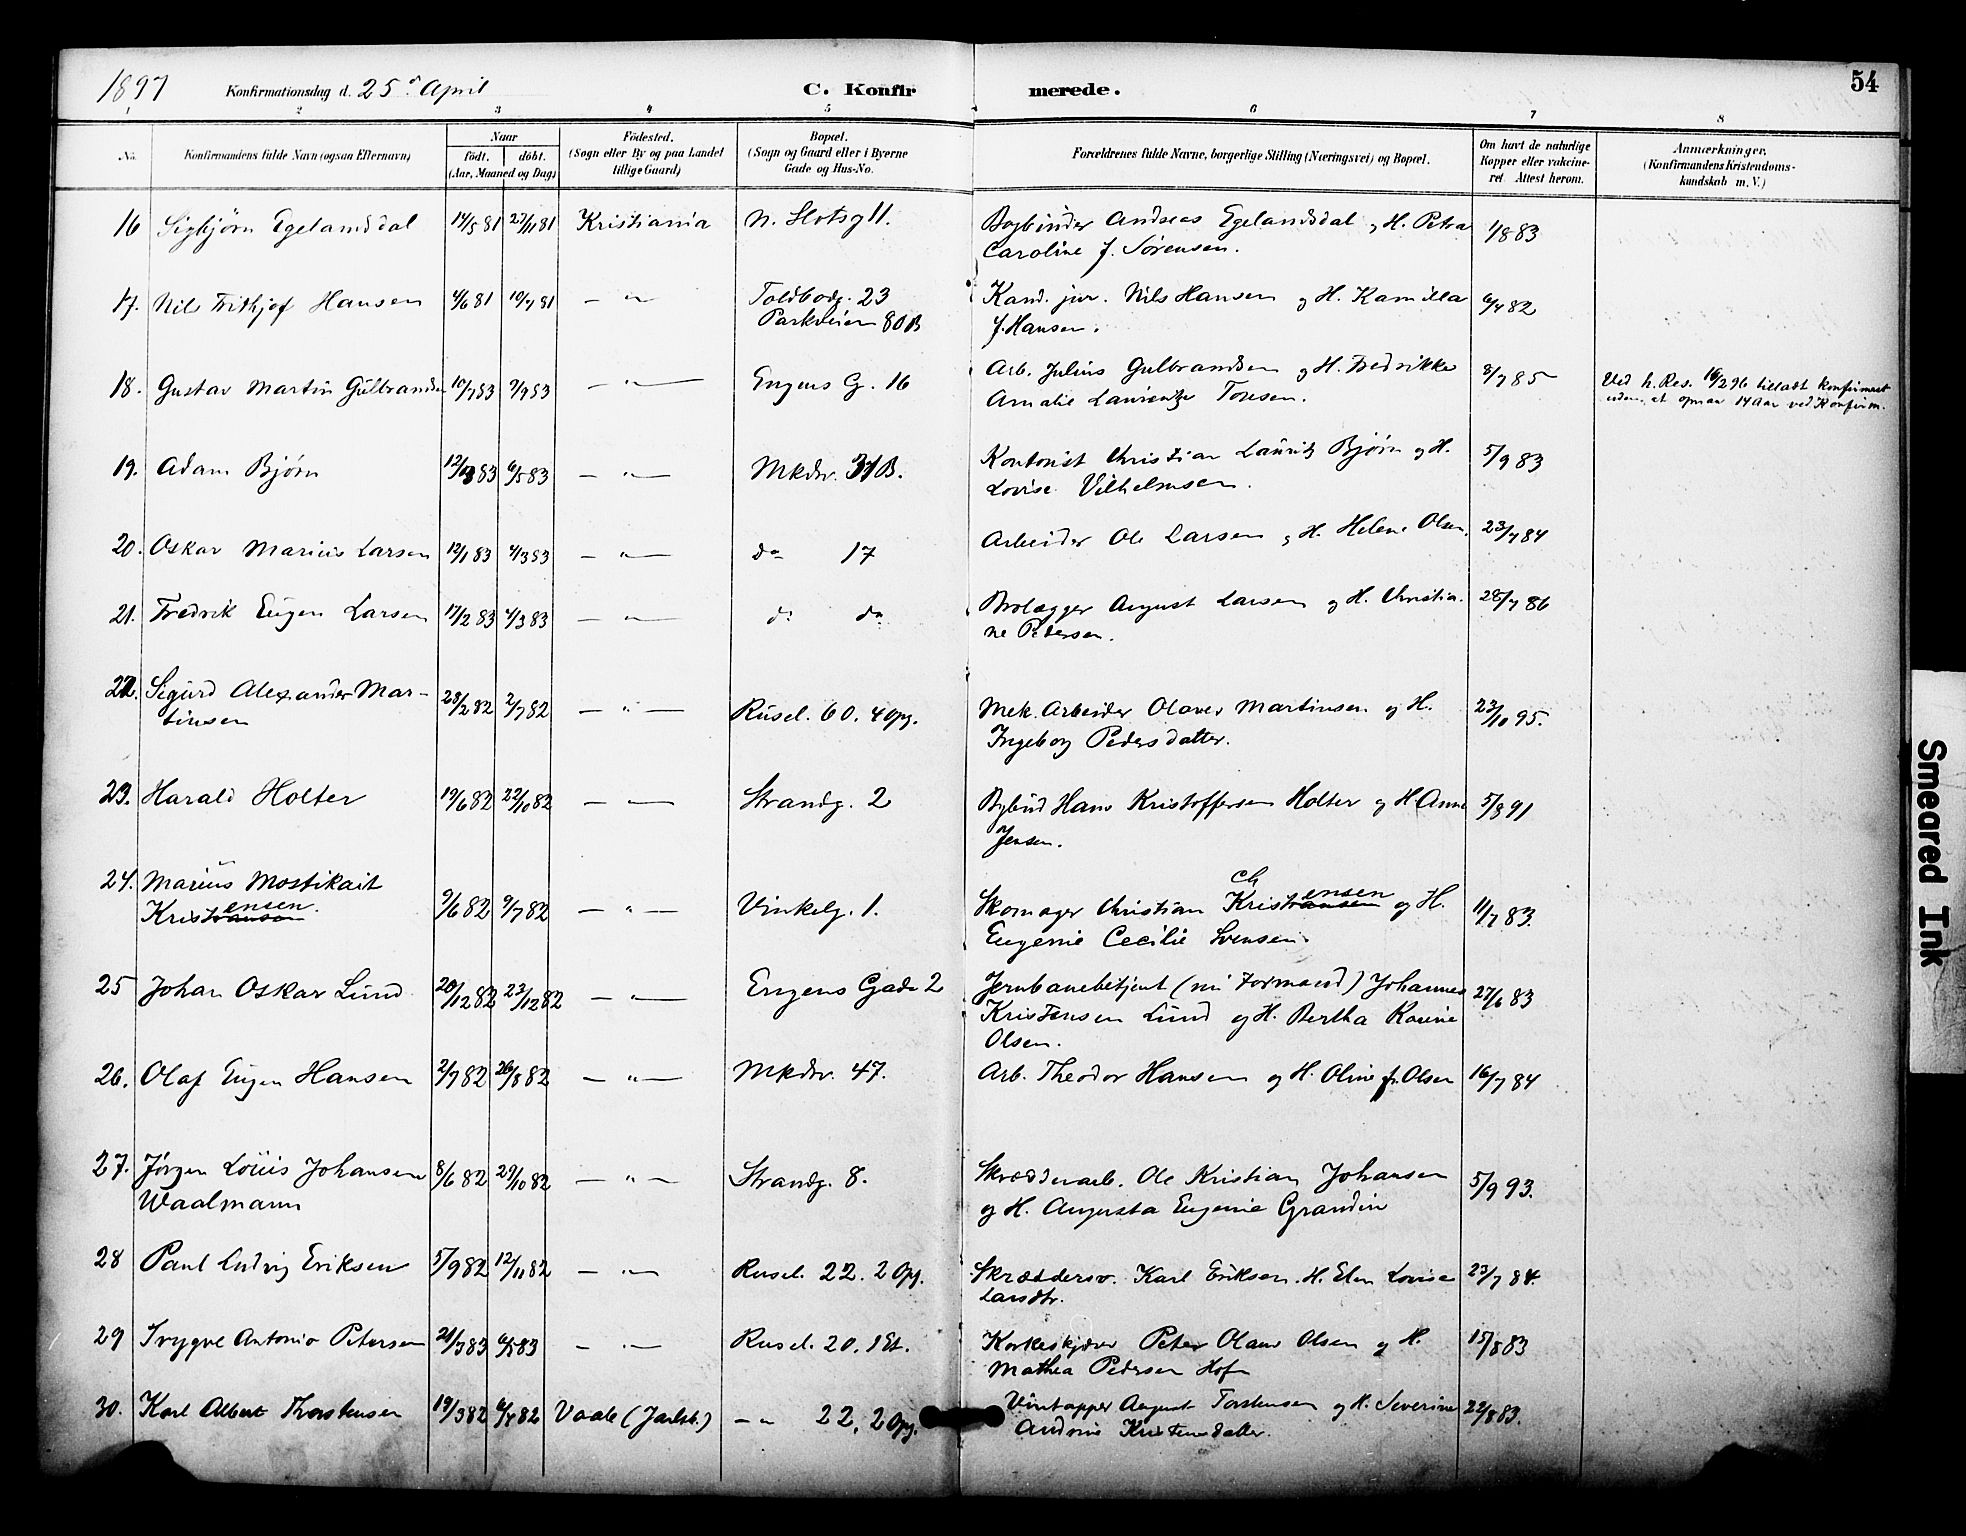 1897 Konfirmationsdag d. 25de April C. Konfirmerede. 54
1 2 3 4 5 6 7 8
No. Konfirmandens fulde Navn (ogsaa Efternavn) Naar födt. döbt. (Aar, Maaned og Dag) Födested. (Sogn eller By og paa Landet tillige Gaard) Bopæl. (Sogn og Gaard eller i Byerne Gade og Hus-No. Forældrenes fulde Navne, borgerlige Stilling (Næringsvei) og Bopæl. Om havt de naturlige Kopper eller vakcineret. Attest herom. Anmærkninger. (Konfirmandens Kristendomskundskab m. V.)
16 Sigbjörn Egelandsdal 14/5 81 27/11 81 Kristiania N. Slotsg 11. Bogbinder Andreas Egelandsdal og H. Petra 1/8 83
Caroline f. Sörensen.
17. Nils Frithjof Hansen 4/6 81 10/7 81 — " — Toldbodg. 23 Kand. jur. Nils Hansen og H. Kamilla 6/4 82
Parkveien 80B f. Hansen.
18. Gustav Martin Gulbrandsen 10/7 83 9/9 83 — " — Engens G. 16 Arb. Julius Gulbrandsen og H. Fredrikke 8/7 85 Ved k. Res. 16/2 96 tilladt konfirmeret
Amalie Laurentze Toresen. uden at opnaa 14 Aar ved Konfirm.
19. Adam Bjørn 12/3 83 6/5 83 — " — Mkdv. 31B. Kontorist Christian Lauritz Bjørn og H. 5/9 83
Lovise Vilhelmsen.
20. Oskar Marius Larsen 12/1 83 4/3 83 — " — do 17 Arbeider Ole Larsen og H. Helene Olsen. 23/7 84
21. Fredrik Eugen Larsen 17/2 83 4/3 83 — " — do do Brolægger August Larsen og H. Christia- 28/7 86
ne Pedersen.
22. Sigurd Alexander Mar- 28/2 82 2/7 82 — " — Rusel. 60. 4 Opg. Mek. Arbeider Olaves Martinsen og H. 23/10 95.
tinsen Ingeborg Pedersdatter.
23. Harald Holter 19/6 82 22/10 82 — " — Strandg. 2 Bybud Hans Kristoffersen Holter og H. Anne 5/8 91
Jensen.
24. Marius Mostikait 9/6 82 9/7 82 — " — Vinkelg. 1. Skomager Christian Christensen og H. 11/7 83.
Kristensen. Eugenie Cecilie Svensen.
25 Johan Oskar Lund 20/12 82 23/12 82 — " — Engens Gade 2 Jernbanebetjent (nu Formand) Johannes 27/6 83
Kristensen Lund og H. Bertha Karine
Olsen.
26. Olaf Eugen Hansen 2/7 82 26/8 82 — " — Mkdv. 47. Arb. Theodor Hansen og H. Oline f. Olsen 16/7 84
27. Jörgen Louis Johansen 8/6 82 29/10 82 — " — Strandg. 8. Skrædderarb. Ole Kristian Johansen 5/9 93.
Waalmann og H. Augusta Eugenie Grandin
28 Paul Ludvig Eriksen 5/9 82 12/11 82 — " — Rusel. 22. 2 Opg. Skræddersv. Karl Eriksen. H. Elen Lovise 23/7 84.
Larsdtr.
29 Trygve Antonio Petersen 21/3 83 6/5 83 — " — Rusel. 20. 1 Et. Korkeskjærer Peter Olaus Olsen og H. 15/8 83
Mathea Pedersen Hof
30. Karl Albert Thorstensen 19/3 82 6/4 82 Vaale (Jarlsb.) — " — 22. 2 Opg. Vintapper August Torstensen og H. Severine 22/8 83.
Andrine Kristensdatter.
Smeared Ink